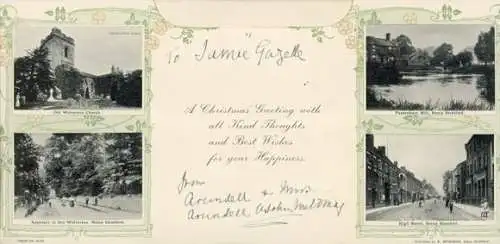 To "Jamie Gazelle"
Old Wolverton Church.
A Christmas Greeting with
all Kind Thoughts
and Best Wishes
for your Happiness.
from
Arundell & Mrs
Arundell
Approach to Old Wolverton, Stony Stratford.
Stony Stratford.
High Street, Stony Stratford.